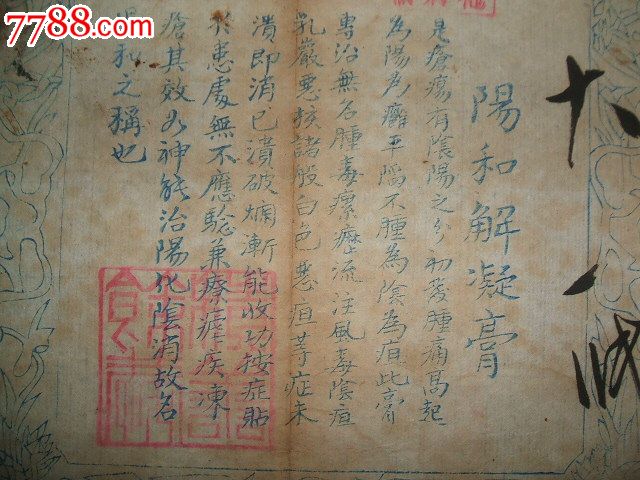 7788.com
陽和解凝膏
是瘡瘍有陰陽之分初發腫痛高起
為陽為癰平陷不腫為陰為疽此膏
專治無名腫毒瘰癧流注風毒陰疽
乳嚴惡核諸般白色惡疽等症未
潰即消已潰破爛漸能收功按症貼
於患處無不應騐兼療瘧疾凍
瘡其效如神能治陽化陰消故名
陽和之稱也